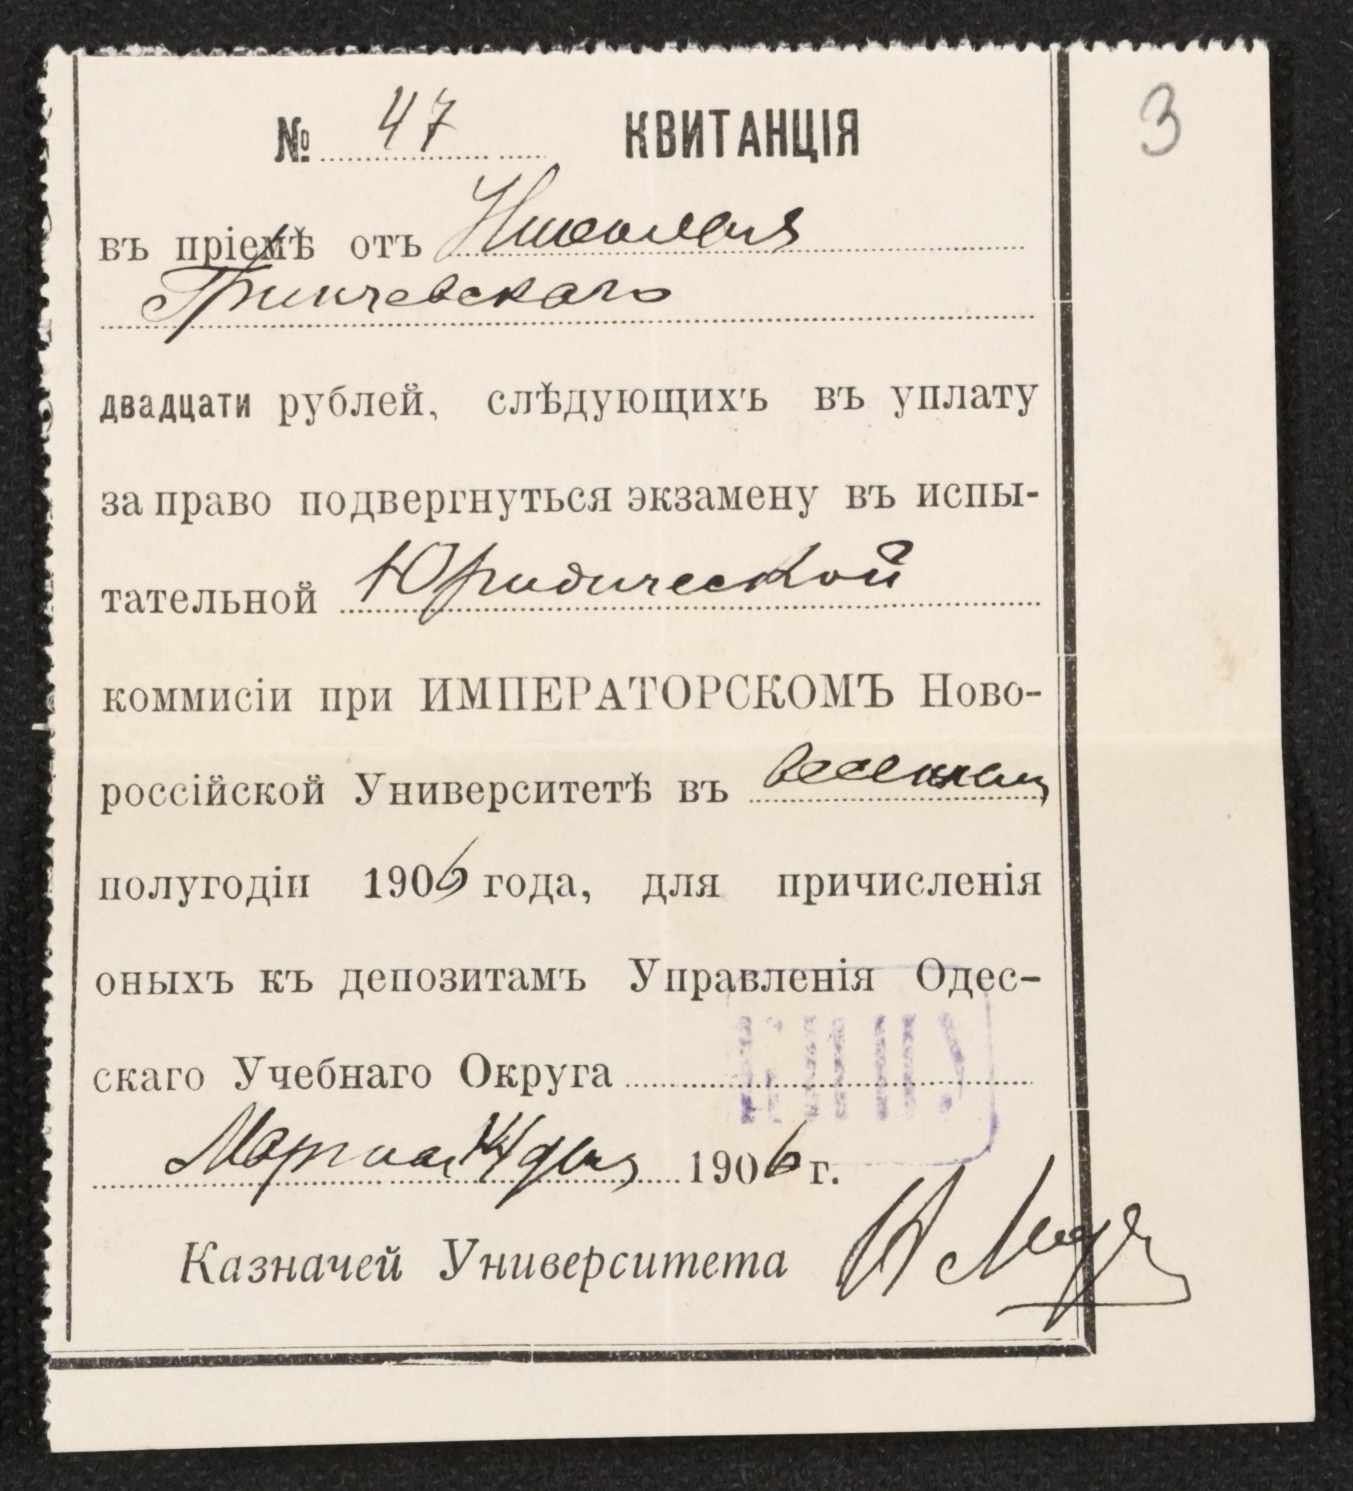 № 47 КВИТАНЦІЯ
3
въ пріемѣ отъ Николая
Гринчевскаго
двадцати рублей, слѣдующихъ въ уплату
за право подвергнуться экзамену въ испы-
тательной Юридической
коммисіи при ИМПЕРАТОРСКОМЪ Ново-
россійской Университетѣ въ весеннем
полугодіи 1906 года, для причисленія
оныхъ къ депозитамъ Управленія Одес-
скаго Учебнаго Округа
Марта 14 дня 1906 г.
Казначей Университета